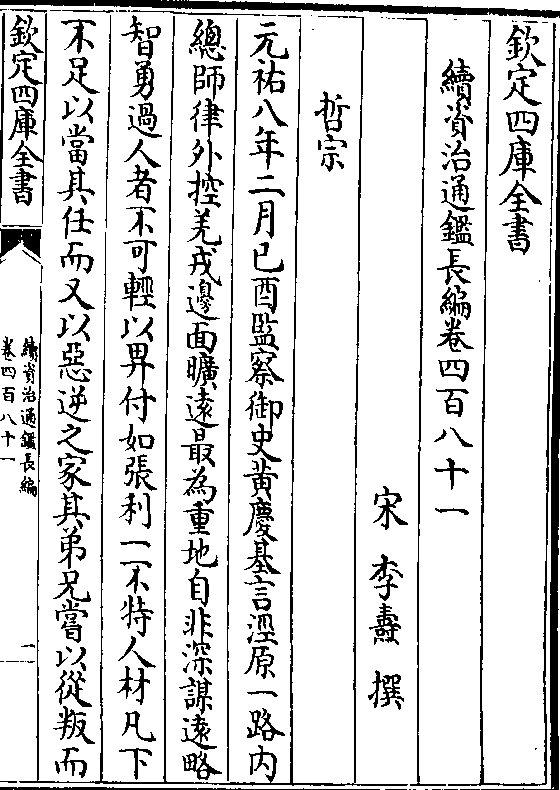 欽定四庫全書
續資治通鑑長編卷四百八十一
宋 李燾 撰
哲宗
元祐八年二月己酉監察御史黃慶基言涇原一路内
總師律外控羌戎邊面曠逺最為重地自非深謀逺略
智勇過人者不可輕以畀付如張利一不特人材凡下
不足以當其任而又以惡逆之家其弟兄嘗以從叛而
欽定四庫全書
續資治通鑑長編
卷四百八十一
一